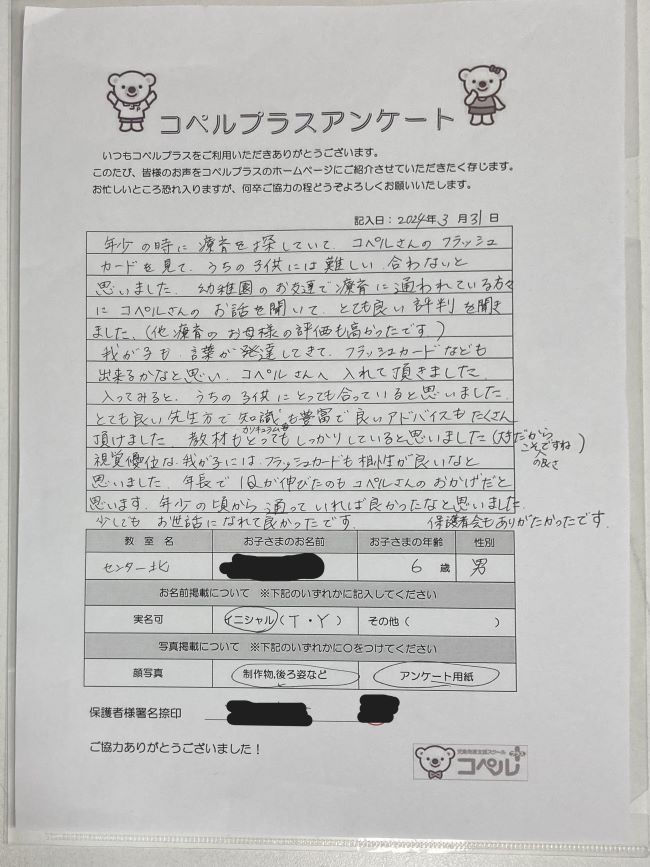 コペルプラスアンケート
いつもコペルプラスをご利用いただきありがとうございます。
このたび、皆様のお声をコペルプラスのホームページにご紹介させていただきたく存じます。
お忙しいところ恐れ入りますが、何卒ご協力の程どうぞよろしくお願いいたします。
記入日：2024年3月31日
年少の時に療育を探していて、コペルさんのフラッシュ
カードを見て、うちの子供には難しい、合わないと
思いました。幼稚園のお友達で療育に通われている方々
にコペルさんのお話を聞いて、とても良い評判を聞き
ました。(他療育のお母様の評価も高かったです。)
我が子も、言葉が発達してきて、フラッシュカードなども
出来るかなと思い、コペルさんへ入れて頂きました。
入ってみると、うちの子供にとっても合っていると思いました。
とても良い先生方で知識も豊富で良いアドバイスもたくさん
頂けました。教材もカリキュラム等とってもしっかりしていると思いました(大手だからこそですね)の良さ
視覚優位な我が子には、フラッシュカードも相性が良いなと
思いました。年長でIQが伸びたのもコペルさんのおかげだと
思います。年少の頃から通っていれば良かったなと思いました。
少しでもお世話になれて良かったです。 保護者会もありがたかったです。
教室名 お子さまのお名前 お子さまの年齢 性別
センター北 6歳 男
お名前掲載について ※下記のいずれかに記入してください
実名可 イニシャル(T・Y) その他( )
写真掲載について ※下記のいずれかに○をつけてください
顔写真 制作物,後ろ姿など アンケート用紙
保護者様署名捺印
ご協力ありがとうございました！
児童発達支援スクール
コペル